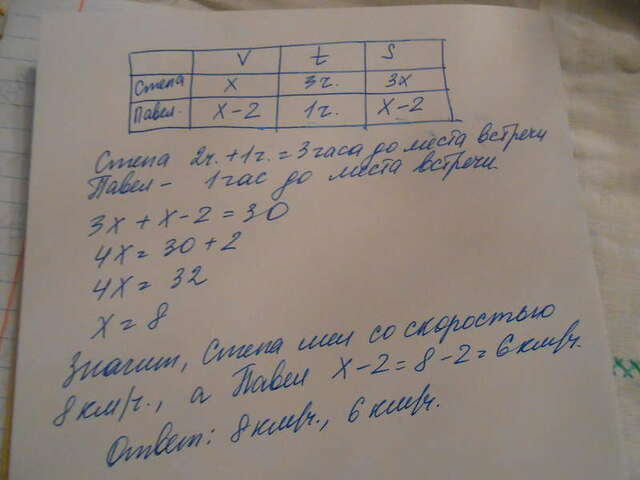 V t S
Степа x 3ч. 3x
Павел. x-2 1ч. x-2
Степа 2ч.+1ч.=3часа до места встречи
Павел- 1час до места встречи.
3x+x-2=30
4x=30+2
4x=32
x=8
Значит, Степа шел со скоростью
8км/ч., а Павел x-2=8-2=6км/ч.
Ответ: 8км/ч., 6км/ч.